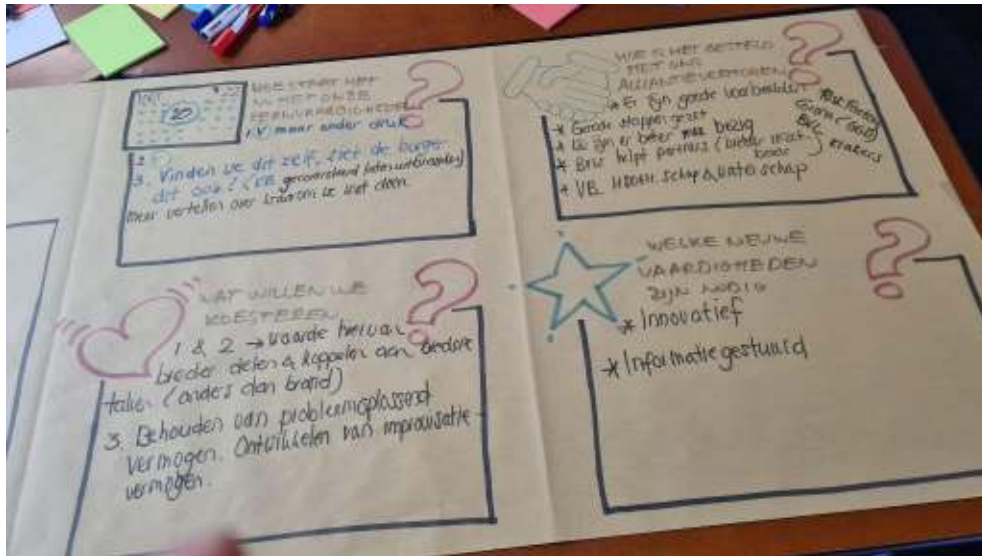 20
HOE STAAT HET
MET ONZE
KERNVAARDIGHEDEN
1. V maar ander druk
2.
3. Vinden we dit zelf, ziet de burger
dit ook?
meer vertellen over waarom we iets doen
HOE IS HET GESTELD
MET ONS
ALLIANTIEVERMOGEN
* Er zijn goede voorbeelden
* Goede stappen gezet
* We zijn er beter mee bezig
* Brw helpt partners
+ VB. schap & Waterschap
WAT WILLEN WE
KOESTEREN
1 & 2 → waarde hiervan
breder delen & koppelen aan bedore
talien (anders dan brand)
3. Behouden van probleemoplossend
vermogen. Ontwikkelen van improvisatie-
vermogen.
WELKE NIEUWE
VAARDIGHEDEN
ZIJN NODIG
* Innovatief
* Informatiegestuurd